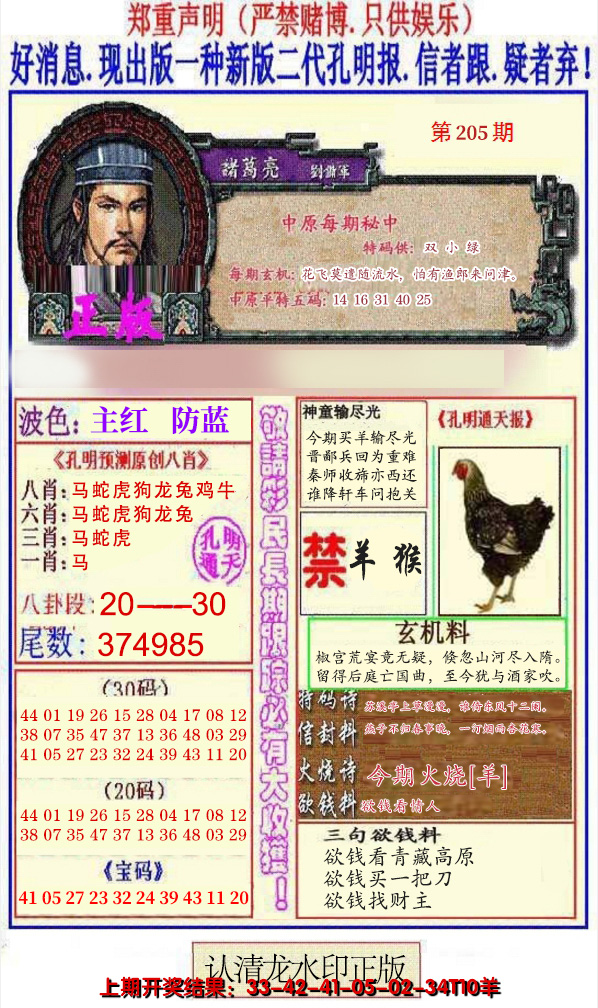 郑重声明（严禁赌博.只供娱乐）
好消息.现出版一种新版二代孔明报.信者跟.疑者弃!
第205期
諸葛亮 劉備軍
中原每期秘中
特码供: 双 小 绿
每期玄机: 花飞莫遣随流水，怕有渔郎来问津。
中原平特五码: 14 16 31 40 25
正版
波色: 主红 防蓝
《孔明预测原创八肖》
八肖: 马蛇虎狗龙兔鸡牛
六肖: 马蛇虎狗龙兔
三肖: 马蛇虎
一肖: 马
孔明
通天
八卦段: 20——30
尾数: 374985
（30码）
44 01 19 26 15 28 04 17 08 12
38 07 35 47 37 13 36 48 03 29
41 05 27 23 32 24 39 43 11 20
（20码）
44 01 19 26 15 28 04 17 08 12
38 07 35 47 37 13 36 48 03 29
《宝码》
41 05 27 23 32 24 39 43 11 20
敬請彩民長期跟踪必有大收獲！
神童输尽光
今期买羊输尽光
晋鄙兵回为重难
秦师收旆亦西还
谁降轩车问抱关
《孔明通天报》
禁 羊 猴
玄机料
椒宫荒宴竟无疑，倏忽山河尽入隋。
留得后庭亡国曲，至今犹与酒家吹。
特码诗
信封料
苏溪亭上草漫漫，谁倚东风十二阑。
燕子不归春事晚，一汀烟雨杏花寒。
火烧诗 今期火烧[羊]
欲钱料 欲钱看情人
三句欲钱料
欲钱看青藏高原
欲钱买一把刀
欲钱找财主
认清龙水印正版
上期开奖结果：33-42-41-05-02-34T10羊